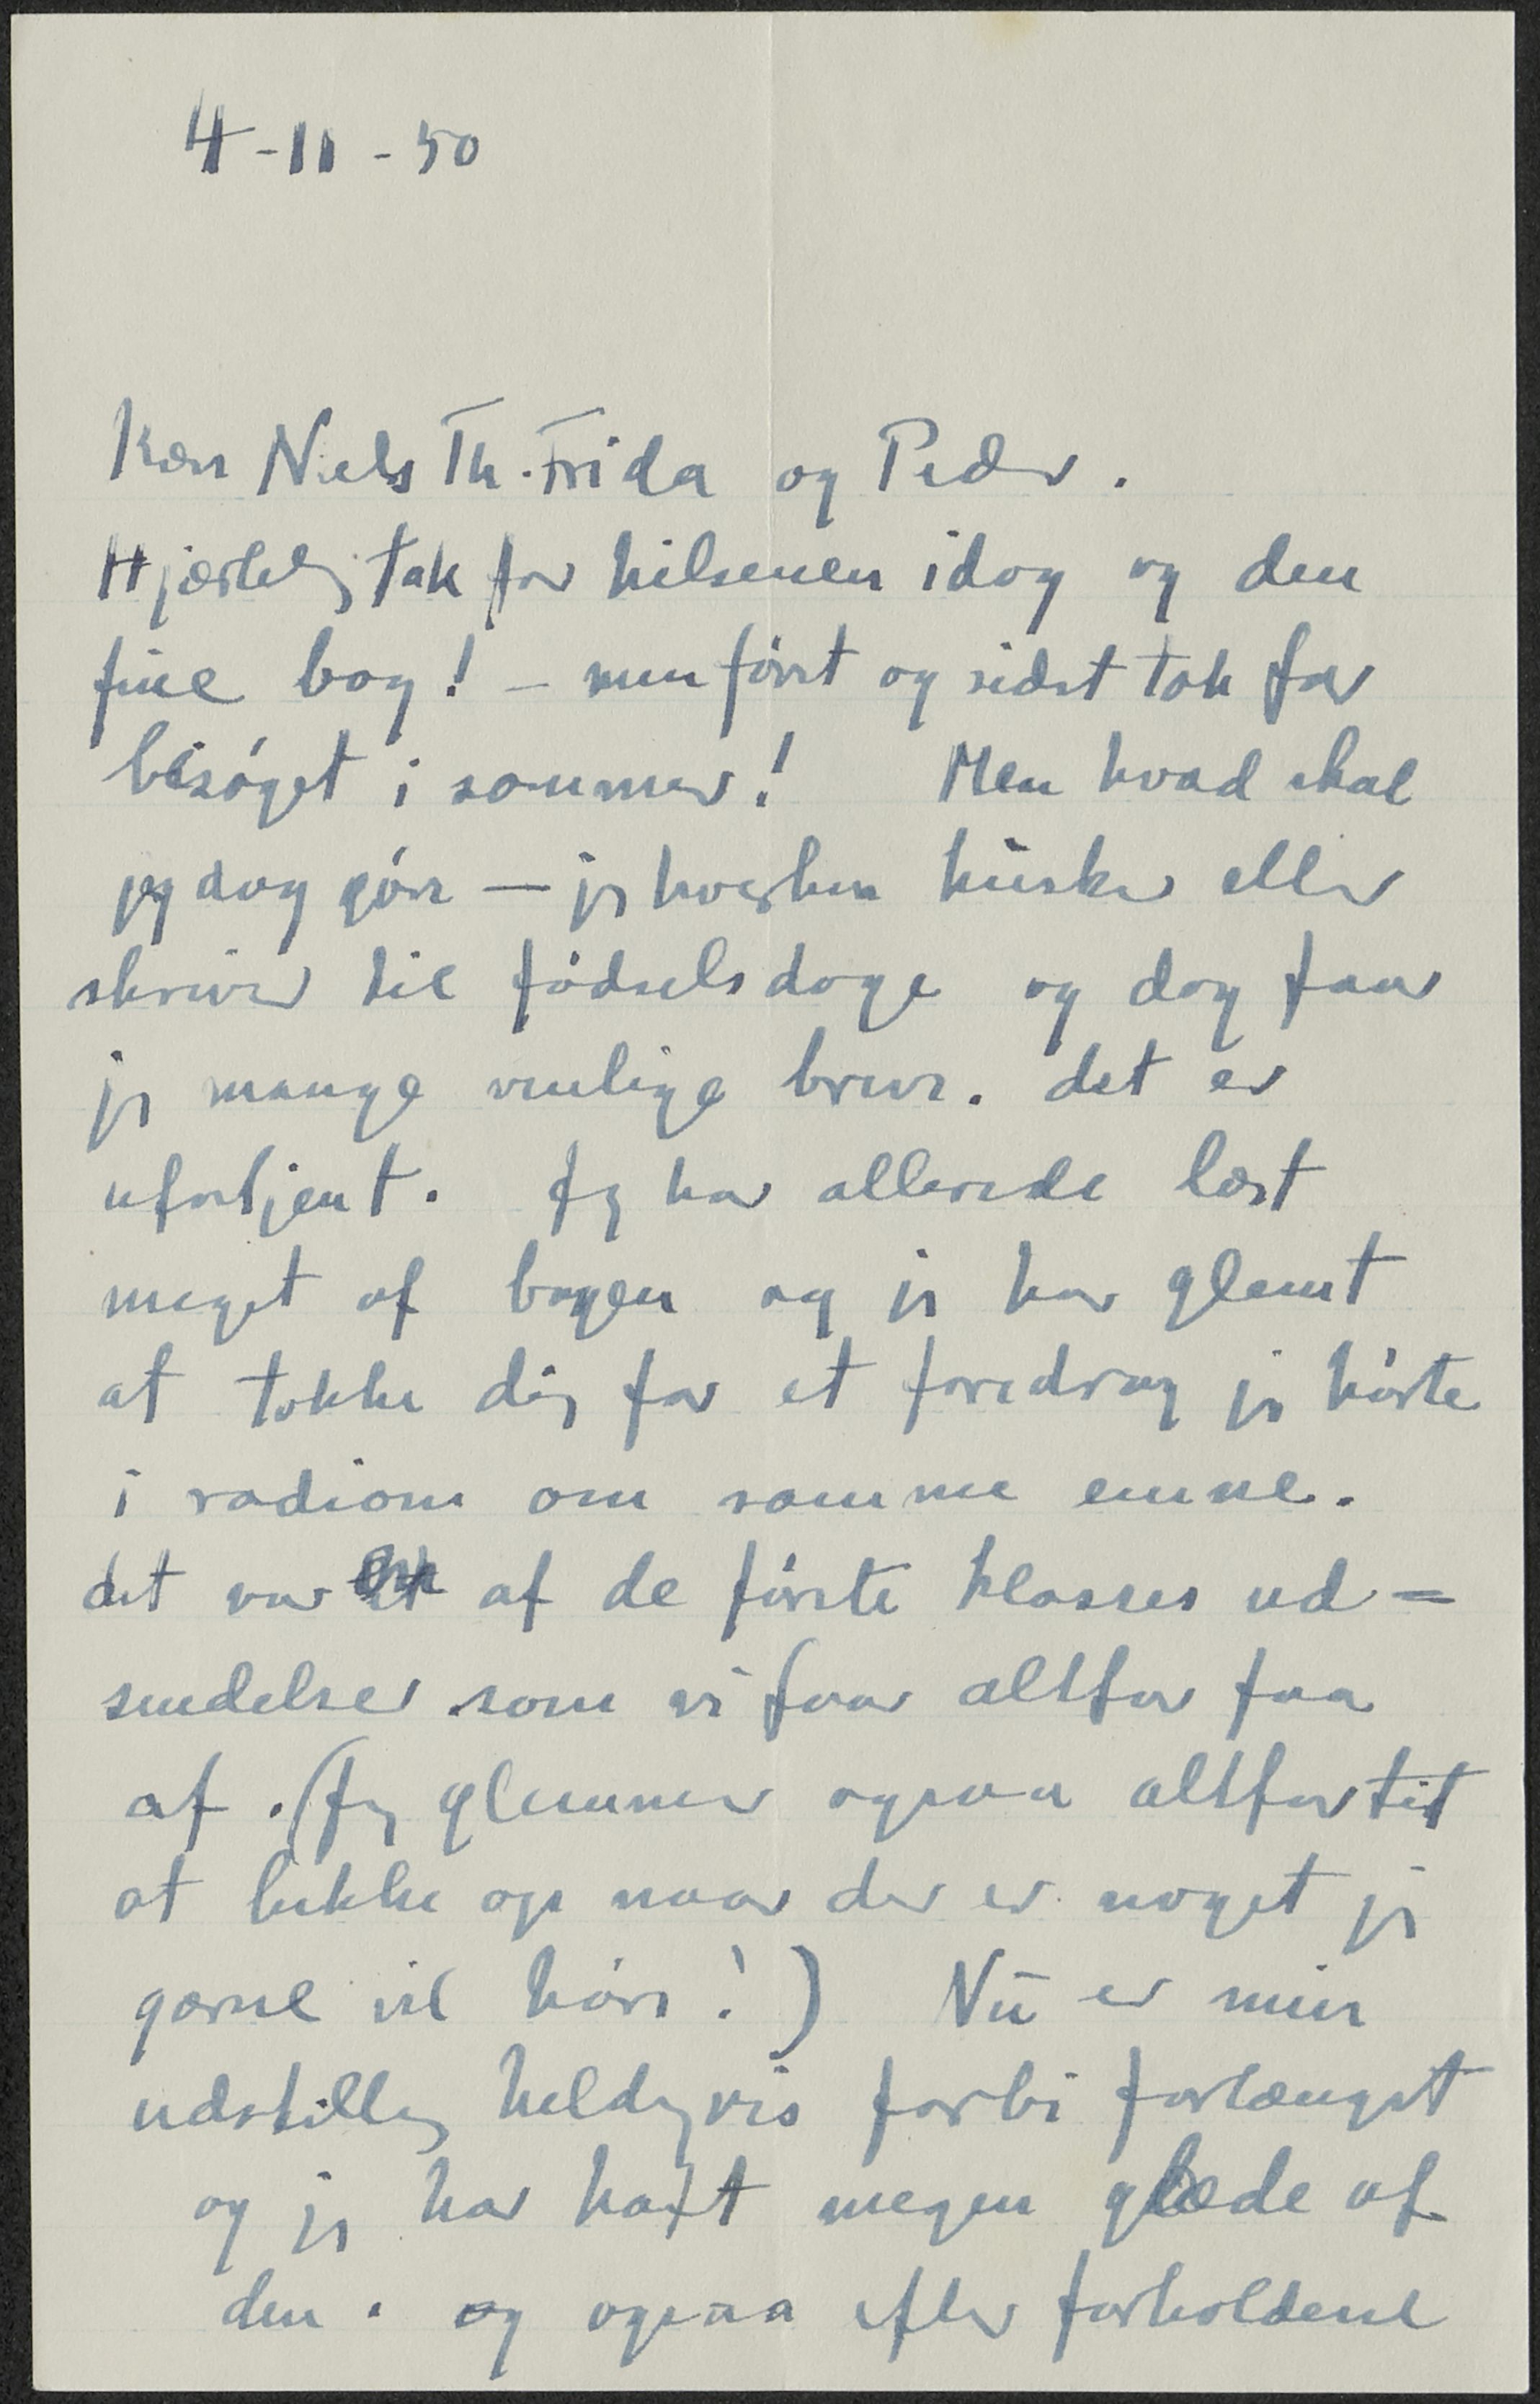 4-11-50
Kære Niels Th. Frida og Peder.
Hjærtelig tak for hilsenen idag og den
fine bog! - men først og sidst tak for
besøget i sommer! Men hvad skal
jeg dog gøre — jeg hverken husker eller
skriver til fødselsdage og dog faar
jeg mange venlige breve. det er
ufortjent. Jeg har allerede læst
meget af bogen og jeg har glemt
at takke dig for et foredrag jeg hørte
i radioen om samme emne.
det var en af de første klasses ud=
sendelser som vi faar altfor faa
af. (Jeg glemmer ogsaa altfor tit
at lukke op naar der er noget jeg
gærne vil høre!) Nu er min
udstilling heldigvis forbi forlængst
og jeg har haft megen glæde af
den. og ogsaa efter forholdene